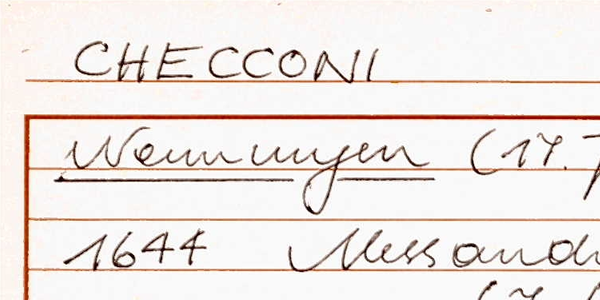 CHECCONI
Nennungen (17.
1644 Alessand